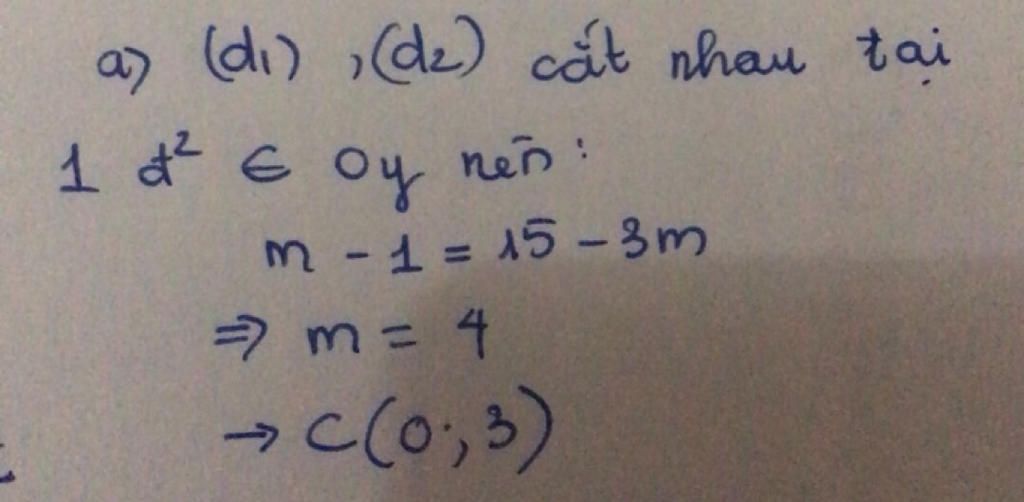 a) (d1) , (d2) cắt nhau tại
1 đ² ∈ Oy nên :
m - 1 = 15 - 3m
=> m = 4
→ C(0 ; 3)